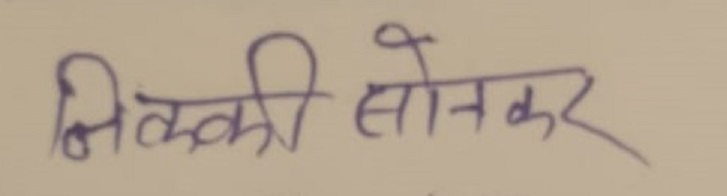 निक्की सोनकर